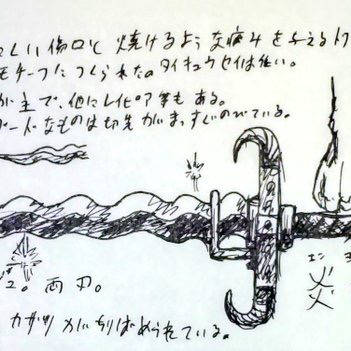 しい傷口と焼けるような痛みを与える
モチーフにつくられた。タイキュウセイは低い。
が主で、他にレイピア等もある。
なものは切先がまっすぐのびている。
エン
炎
2。両刃。
カザリがちりばめられている。